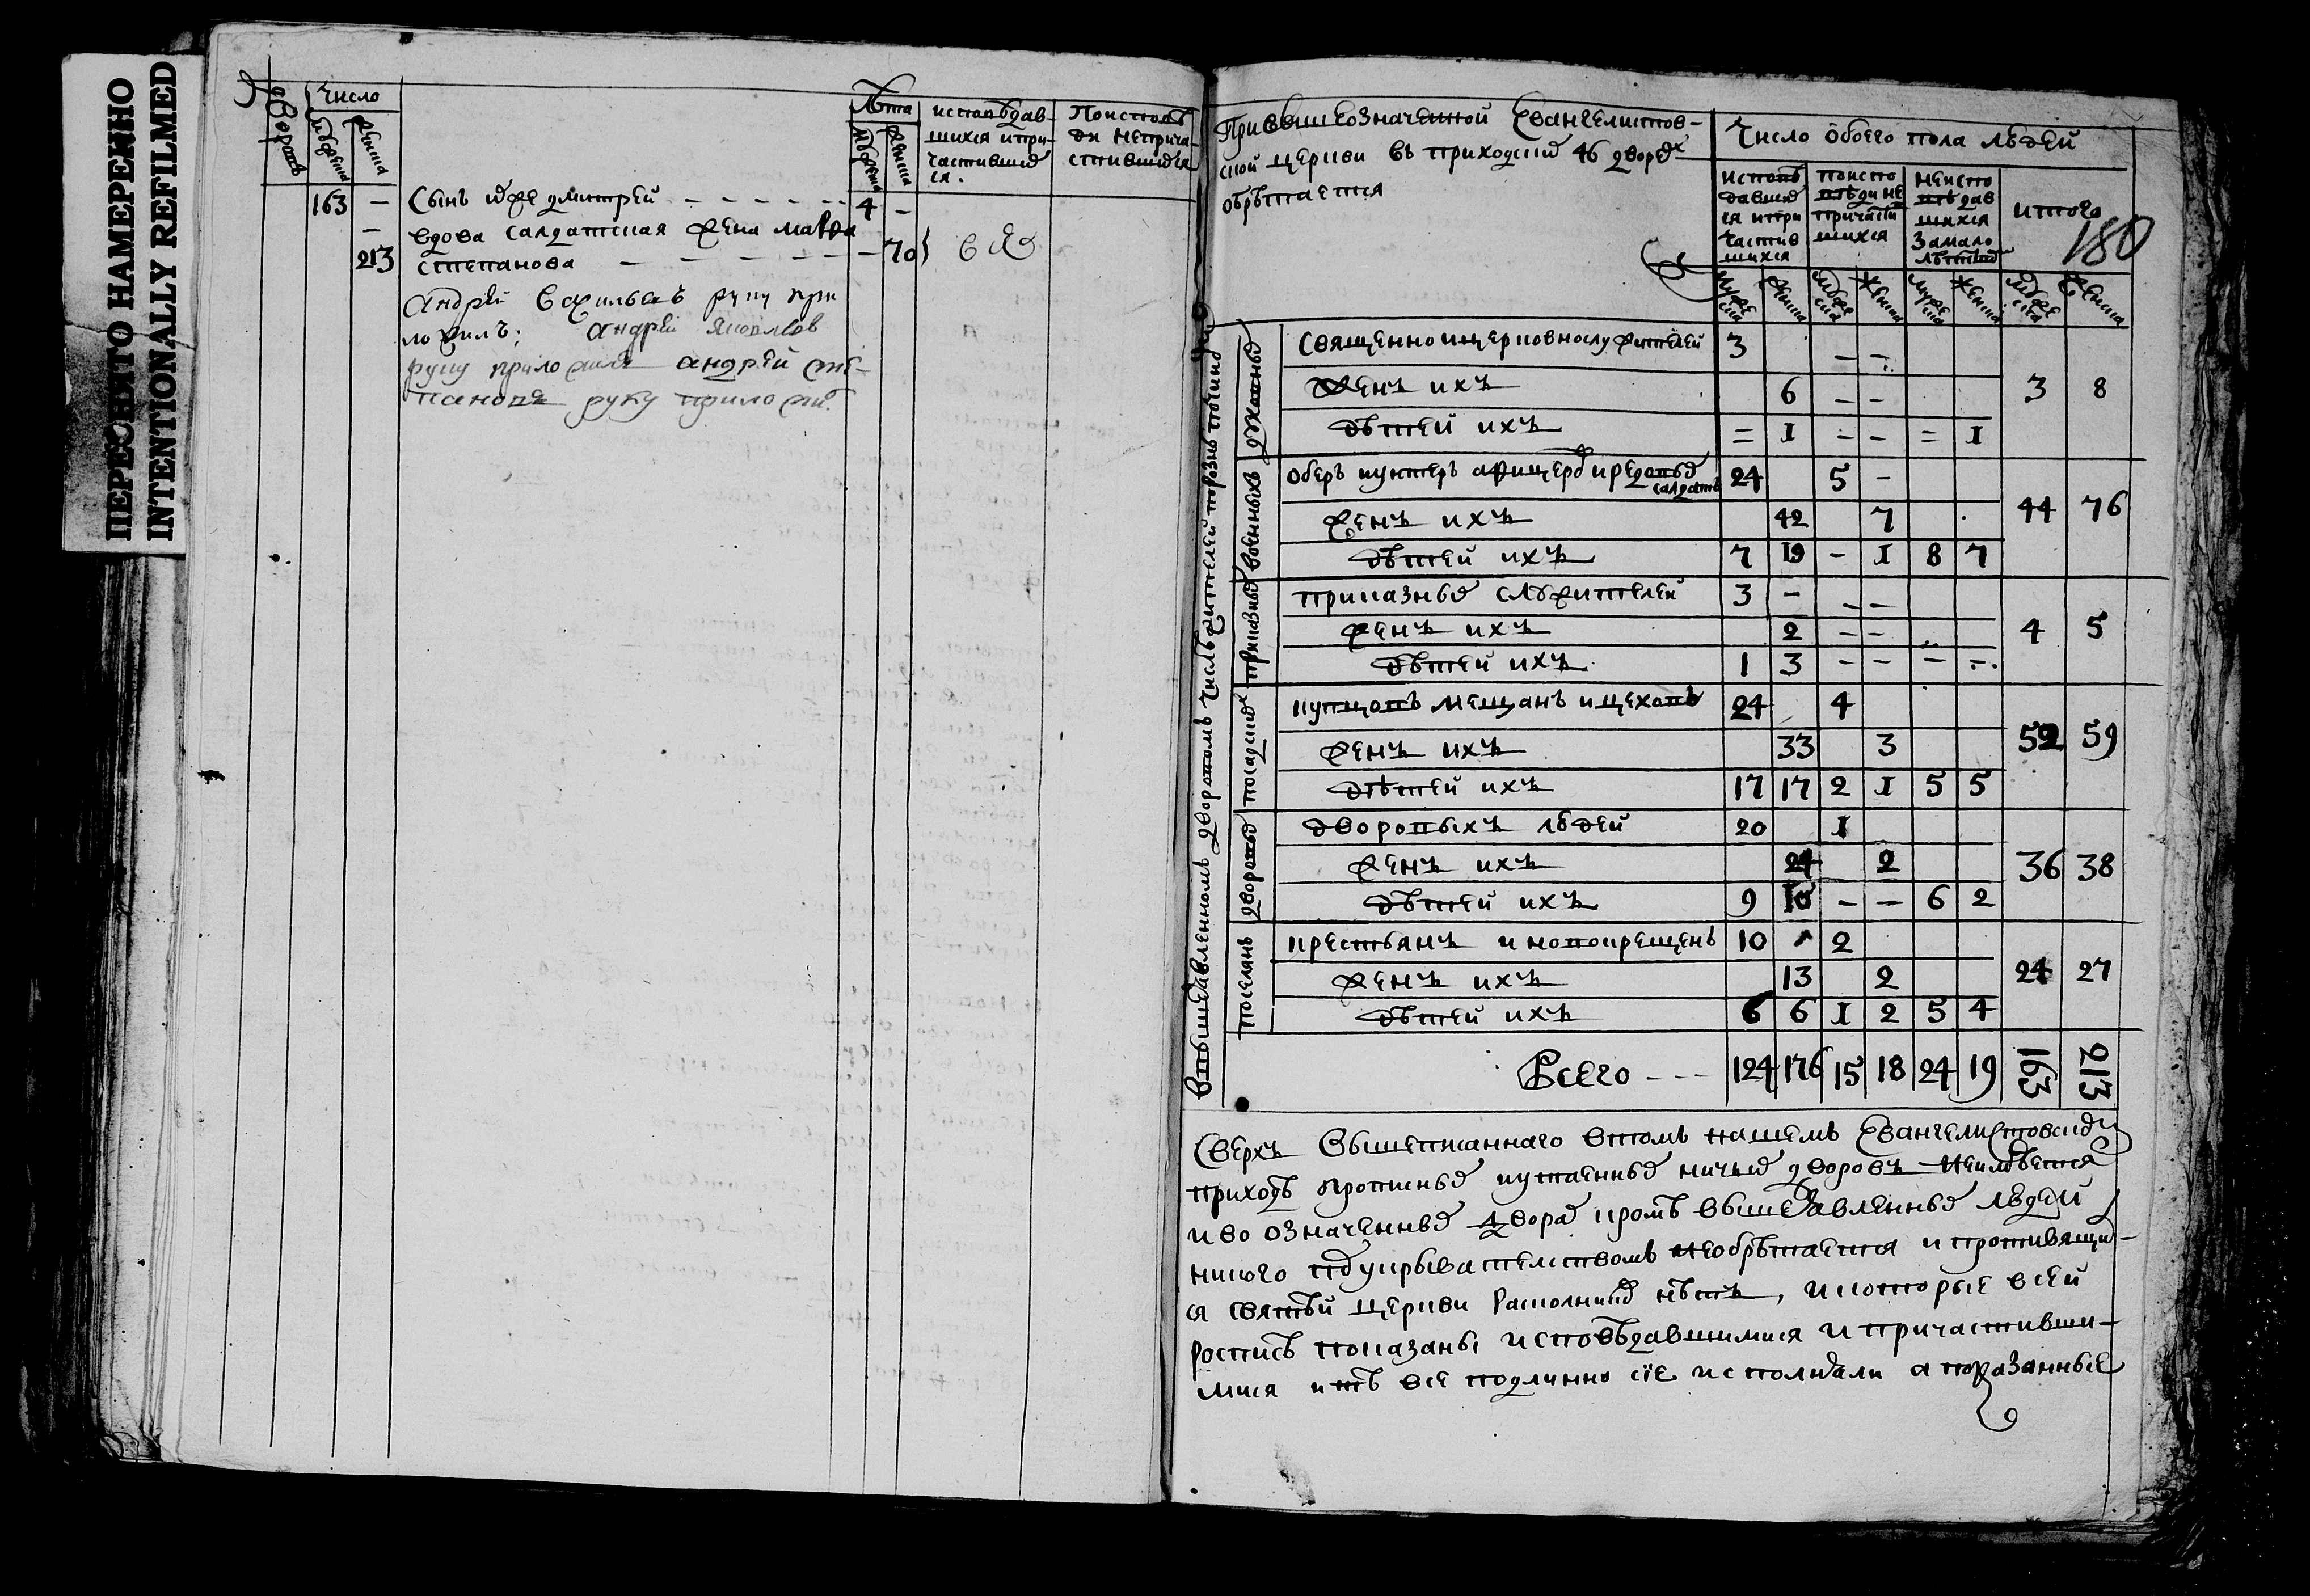 ПЕРЕСНЯТО НАМЕРЕННО
INTENTIONALLY REFILMED
дворовъ
Число
мужеска
женска
Лѣта
мужеска
женска
исповѣдав-
шихся и при-
частивших
ся.
По испове
ди неприча-
стившихся
163 — Сынъ их же дмитрей - - - - - 4 -
— вдова салдатская жена мавра
213 степанова — — — — — — 70 } вѣ
андрей васильевъ руку при
ложилъ; андрей яковлевъ
руку приложилъ андрей сте-
пановъ руку приложи
При вышеозначенной Евангелистов-
ской церкви въ приходскихъ 46 дворехъ
обрѣтается
Число обоего пола людей
исповѣ
давших
ся и при
частив
шихся
по испо
вѣди не
причасти
шихся
неиспо
вѣдав
шихся
за мало
лѣтств
итого
180
мужеска
женска
мужеска
женска
мужеска
женска
мужеска
женска
вышеявленномъ дворовомъ числѣ жителей порознь по чину
духовныхъ
Священно и церковнослужителей 3 — —
Женъ ихъ 6 — — 3 8
дѣтей ихъ = 1 - - = 1
военныхъ
оберъ и унтеръ афицеровъ и редовых салдатъ 24 5 -
женъ ихъ 42 7 44 76
дѣтей ихъ 7 19 - 1 8 7
приказныхъ
приказныхъ служителей 3 - — —
женъ ихъ 2 — — 4 5
дѣтей ихъ 1 3 - - - -
посадскихъ
купцовъ мещанъ и цеховъ 24 4
женъ ихъ 33 3 52 59
дѣтей ихъ 17 17 2 1 5 5
дворовыхъ
дворовыхъ людей 20 1
женъ ихъ 24 2 36 38
дѣтей ихъ 9 10 - - 6 2
поселянъ
крестьянъ и новокрещенъ 10 2
женъ ихъ 13 2 24 27
дѣтей ихъ 6 6 1 2 5 4
Всего - - - 124 176 15 18 24 19 163 213
Сверхъ вышеписаннаго втомъ нашемъ Евангелистовском
приходѣ пропискныхъ и утаенныхъ ничьих дворовъ неимѣется
и во означенныхъ дворах кромѣ вышеявленных людей
никого под укрывателством необрѣтается и противящих-
ся святѣй церкви расколников нѣтъ, и которые в сей
росписѣ показаны исповѣдавшимися и причастивши-
мися и тѣ все подлинно сїе исполняли а показанные